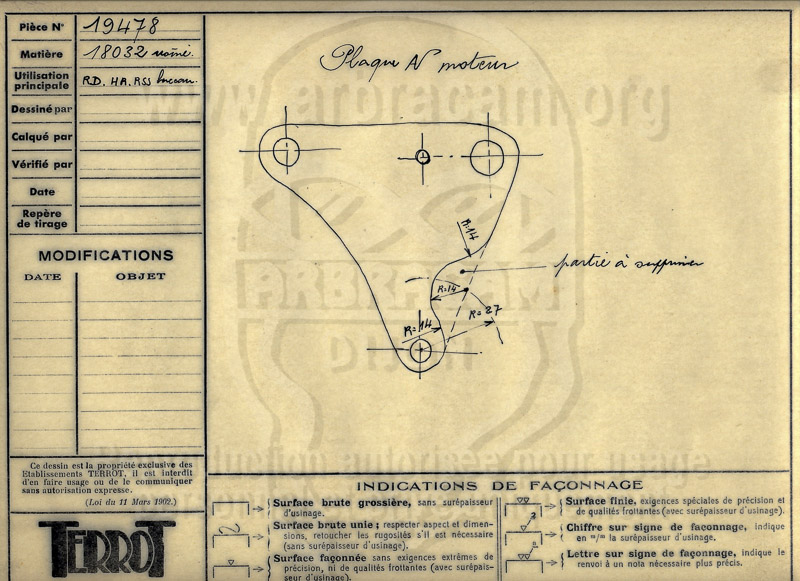 Pièce N° 19478
Matière 18032
Utilisation principale RD. HA. RSS
Dessiné par
Calqué par
Vérifié par
Date
Repère de tirage
MODIFICATIONS
DATE OBJET
Ce dessin est la propriété exclusive des
Etablissements TERROT, il est interdit
d'en faire usage ou de le communiquer
sans autorisation expresse.
(Loi du 11 Mars 1902.)
TERROT
Plaque AV moteur
R=14
partie à supprimer
R=14
R=27
R=14
www.arbracam.org
ARBRACAM
Dijon
Reproduction autorisée pour usage
INDICATIONS DE FAÇONNAGE
Surface brute grossière, sans surépaisseur
d'usinage.
Surface brute unie; respecter aspect et dimen-
sions, retoucher les rugosités s'il est nécessaire
(sans surépaisseur d'usinage).
Surface façonnée sans exigences extrêmes de
précision, ni de qualités frottantes (avec surépais-
seur d'usinage).
Surface finie, exigences spéciales de précision et
de qualités frottantes (avec surépaisseur d'usinage).
Chiffre sur signe de façonnage, indique
en m/m la surépaisseur d'usinage.
Lettre sur signe de façonnage, indique le
renvoi à un nota nécessaire plus précis.